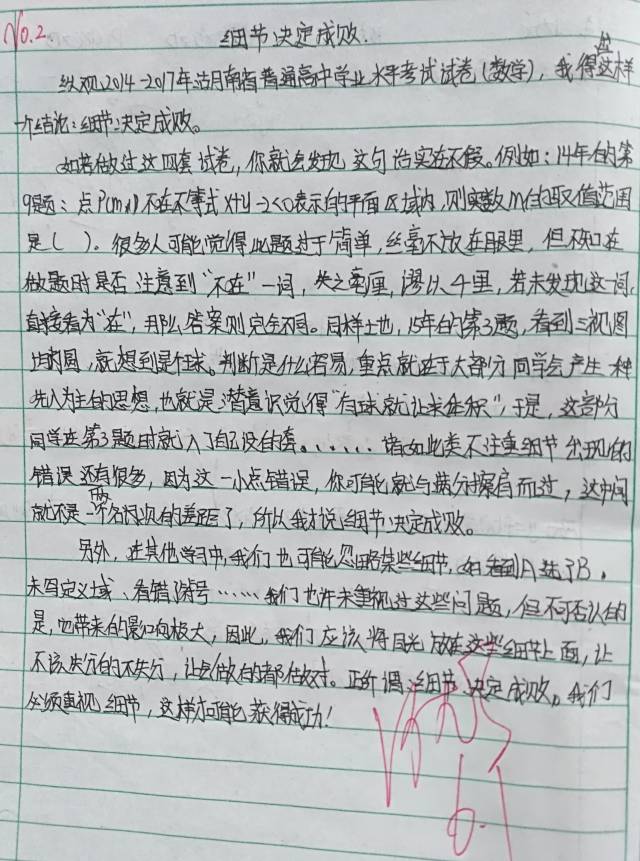 No.2
细节决定成败.
纵观2014-2017年湖南省普通高中学业水平考试试卷(数学),我得出这样
一个结论:细节决定成败。
如若做过这四套试卷,你就会发现这句话实在不假。例如:14年的第
9题:点P(m,1)不在不等式x+y-2<0表示的平面区域内,则实数m的取值范围
是( )。很多人可能觉得此题过于简单,丝毫不放在眼里,但不知在
做题时是否注意到“不在”一词,失之毫厘,谬以千里,若未发现这一词,
直接看为“在”,那么答案则完全不同。同样地,15年的第3题,看到三视图
中的圆,就想到是个球。判断是什么容易,重点就在于大部分同学会产生一种
先入为主的思想,也就是潜意识觉得“有球就让求体积”,于是,这部分
同学在第3题时就入了自己设的套。......诸如此类不注重细节出现的
错误还有很多,因为这一小点错误,你可能就与满分擦肩而过,这中间
就不是一两个名次的差距了,所以我才说细节决定成败。
另外,在其他学习中,我们也可能忽略某些细节,如看到A选了B,
未写定义域、看错符号......我们也许未重视过这些问题,但不可否认的
是,它带来的影响极大,因此,我们应该将目光放在这些细节上面,让
不该失分的不失分,让会做的都做对。正所谓:细节决定成败。我们
必须重视细节,这样才可能获得成功!
6.1